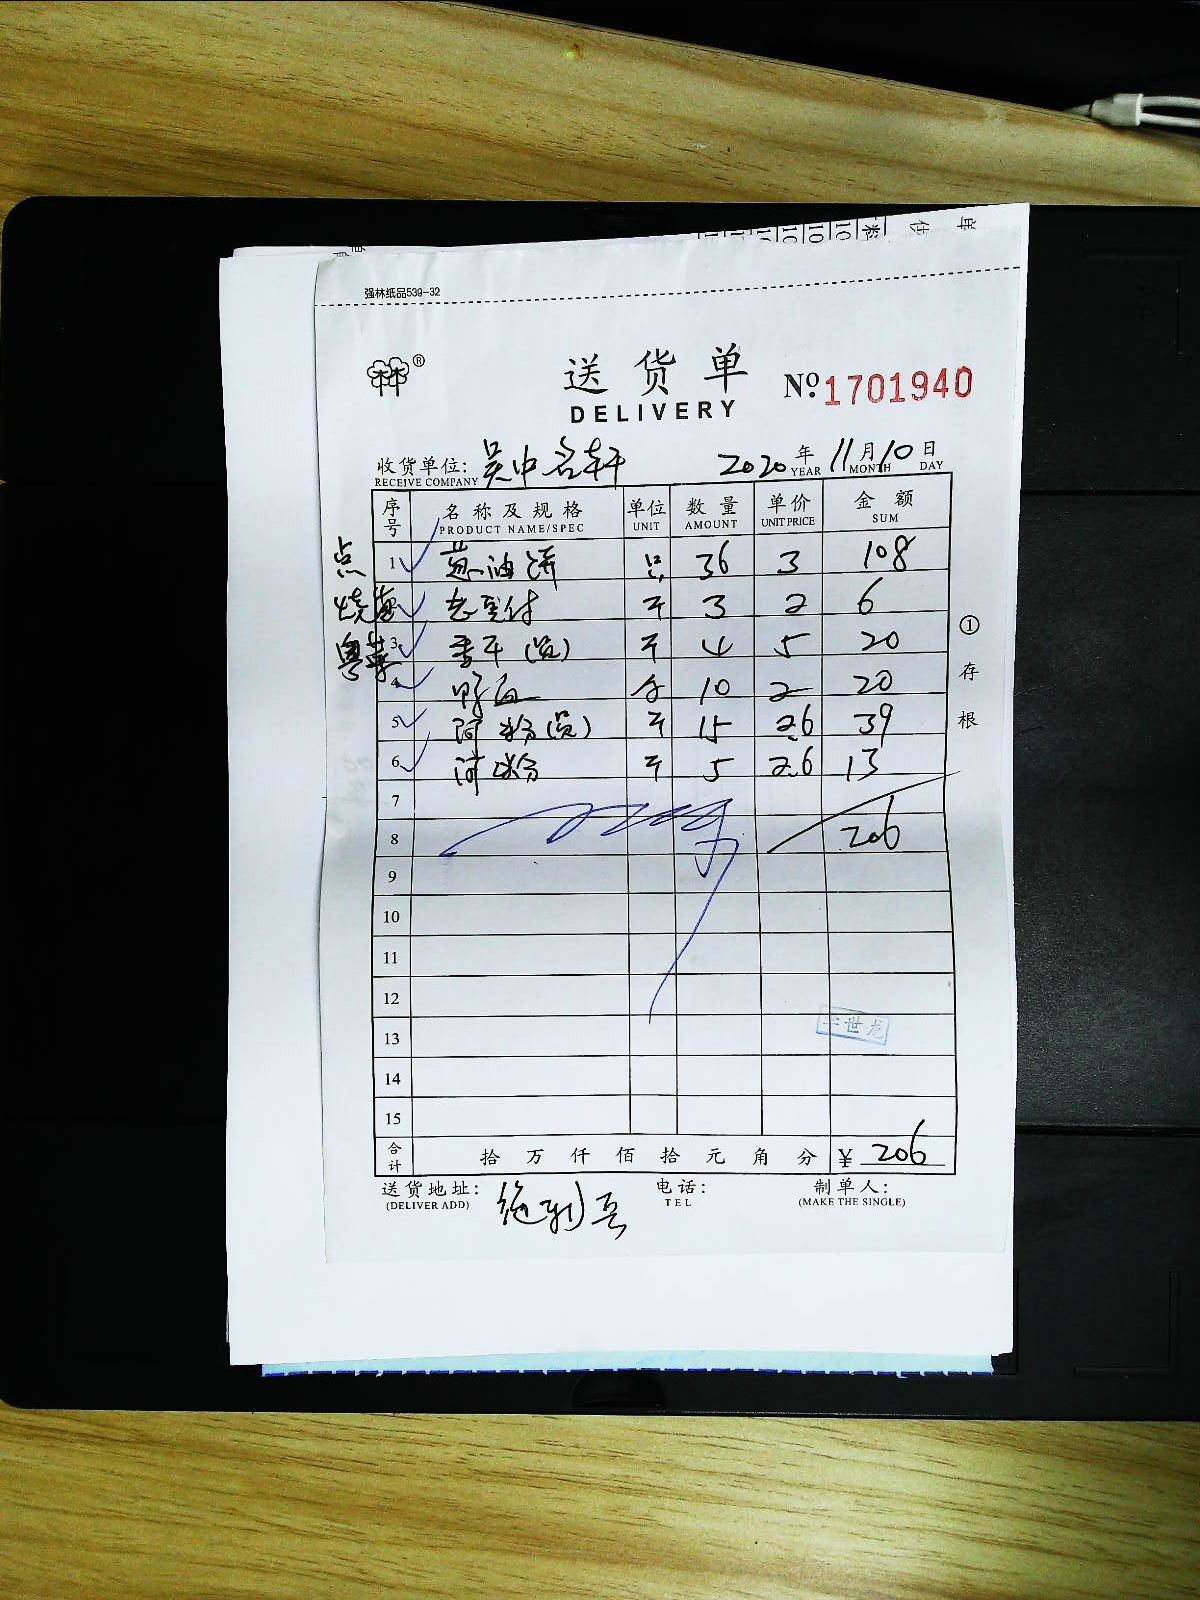 强林纸品539-32
送货单
DELIVERY
Nº.1701940
收货单位: 吴中名轩 2020年11月10日
RECEIVE COMPANY YEAR MONTH DAY
序号 名称及规格 单位 数量 单价 金额
PRODUCT NAME/SPEC UNIT AMOUNT UNIT PRICE SUM
点 1 葱油饼 只 36 3 108
烧 老豆付 斤 3 2 6
粤菜 3 斤 4 5 20
4 鸭血 10 2 20
5 河粉 斤 15 2.6 39
6 河粉 斤 5 2.6 13
7
8 206
9
10
11
12
13 世龙
14
15
合计 拾万仟佰拾元角分 ¥ 206
送货地址: 电话: 制单人:
(DELIVER ADD) TEL (MAKE THE SINGLE)
①存根